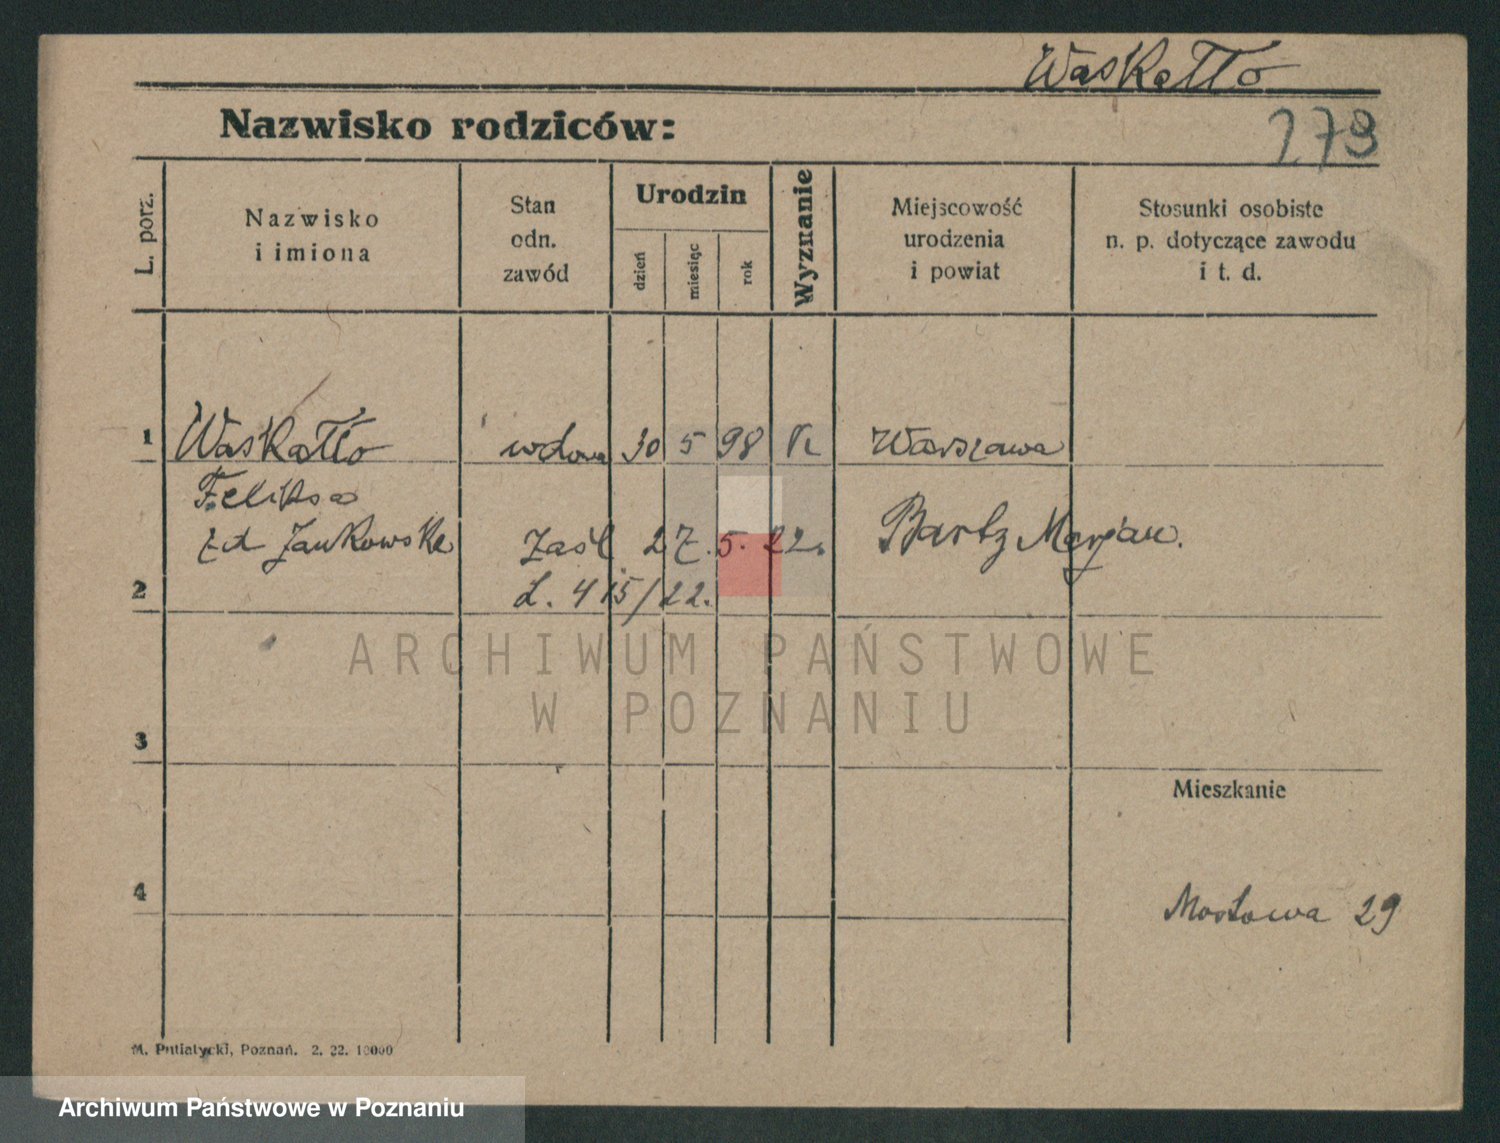 Waskałło
Nazwisko rodziców:
179
L. porz.
Nazwisko
i imiona
Stan
odn.
zawód
Urodzin
dzień
miesiąc
rok
Wyznanie
Miejscowość
urodzenia
i powiat
Stosunki osobiste
n. p. dotyczące zawodu
i t. d.
1 Waskałło wdowa 30 5 98 K Warszawa
Feliksa
zd Jankowska Zaśl 27. 5. 22. Bartz Marjan.
2 L. 415/22.
ARCHIWUM PAŃSTWOWE
W POZNANIU
3
Mieszkanie
4 Mostowa 29
M. Putiatycki, Poznań. 2. 22. 10000
Archiwum Państwowe w Poznaniu